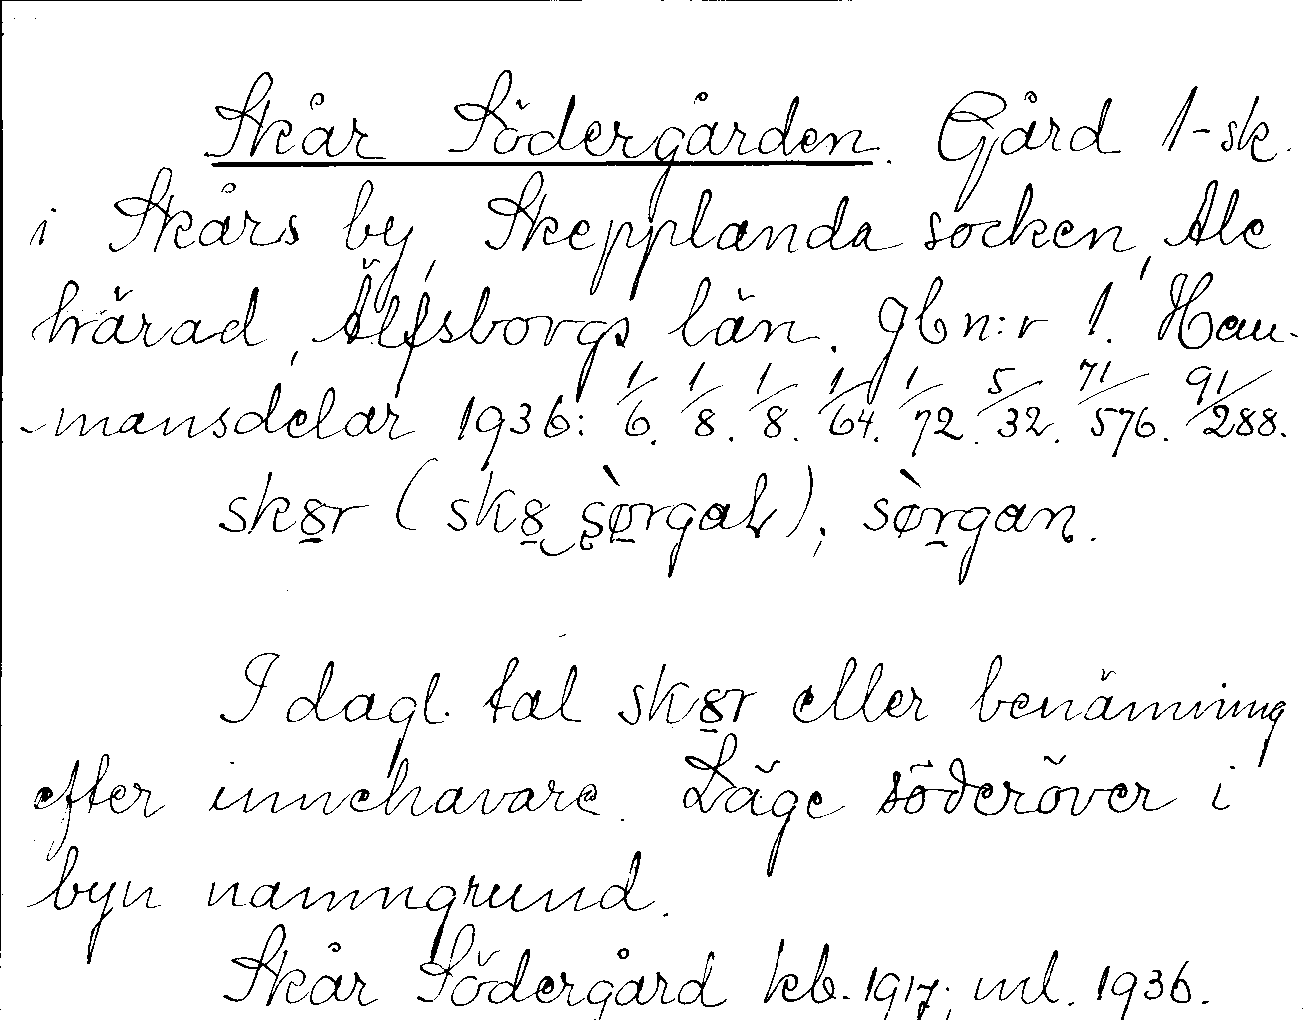 Skår Södergården. Gård 1-sk.
i Skårs by, Skepplanda socken, Ale
härad, Älfsborgs län. gbn:r 1. Hem-
-mansdelar 1936: 1/6. 1/8. 1/8. 1/64. 1/72. 5/32. 71/576. 91/288.
sk8̠r (sk8̠ sø̠̀rgaɳ); sø̠̀rgan.
I dagl. tal sk8̠r eller benämning
efter innehavare. Läge söderöver i
byn namngrund.
Skår Södergård kb. 1917; ml. 1936.